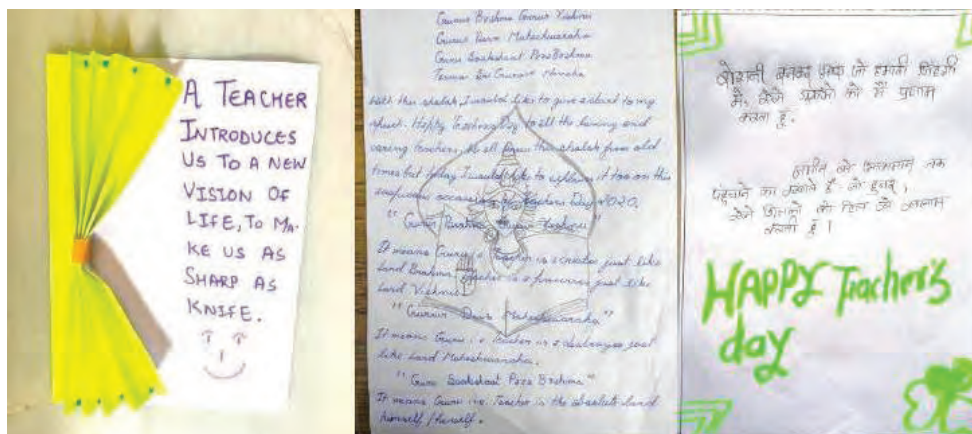 A TEACHER
INTRODUCES
US TO A NEW
VISION OF
LIFE, TO MA-
KE US AS
SHARP AS
KNIFE.
Gurur Brahma Gurur Vishnu
Gurur Devo Maheshwaraha
Guru Saakshaat Para Brahma
Tasmai Sri Gurave Namaha
With this shalok I would like to give a start to my
speech. Happy Teachers Day to all the loving and
caring teachers. We all know this shalok from old
times but today I would like to explain it too on this
auspicious occasion of Teachers Day 2020.
"Gurur Brahma Gurur Vishnu"
It means Guru i.e Teacher is a creator just like
Lord Brahma, Teacher is a preserver just like
Lord Vishnu.
"Gurur Devo Maheshwaraha"
It means Guru i.e Teacher is a destroyer just
like Lord Maheshwaraha.
"Guru Saakshaat Para Brahma"
It means Guru i.e. Teacher is the absolute lord
himself/herself.
बनकर आए जो हमारी ज़िंदगी
में, ऐसे को मैं प्रणाम
करता हूँ.
जमीन से आसमान तक
पहुंचाने का रखते हैं जो हुनर,
ऐसे को दिल से
करती हूँ।
HAPPY Teacher's
day